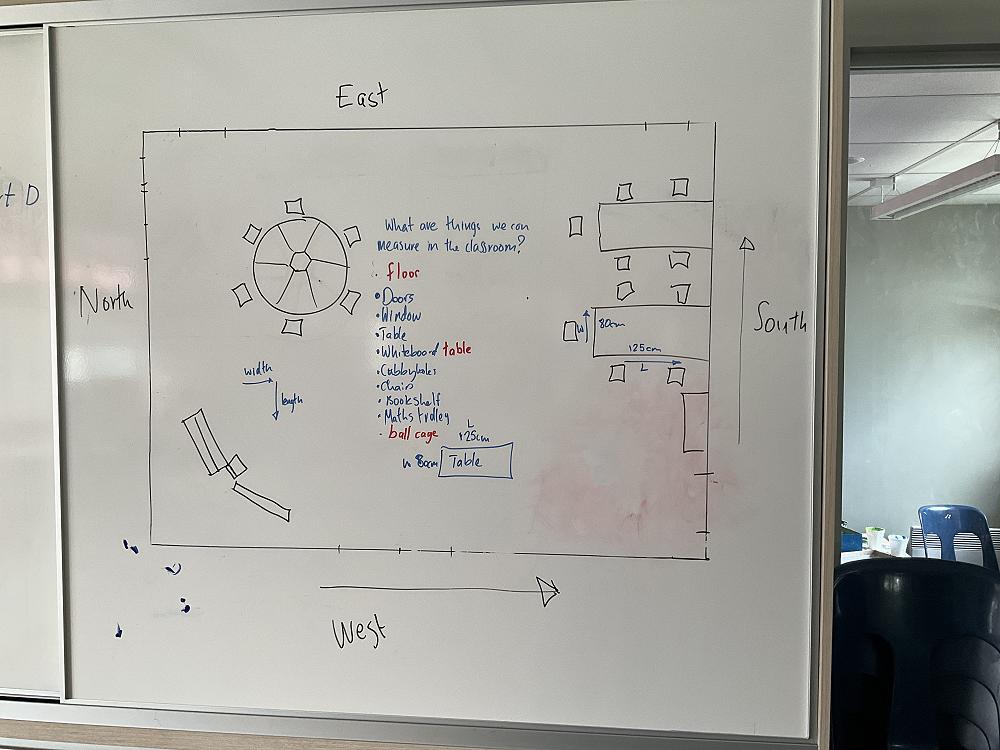 East
t D
What are things we can
measure in the classroom?
· floor
• Doors
• Window
• Table
• Whiteboard table
• Cubbyholes
• Chairs
• Bookshelf
• Maths trolley
· ball cage
L
125cm
w 80cm Table
North
width
length
80cm
w
125cm
L
South
West